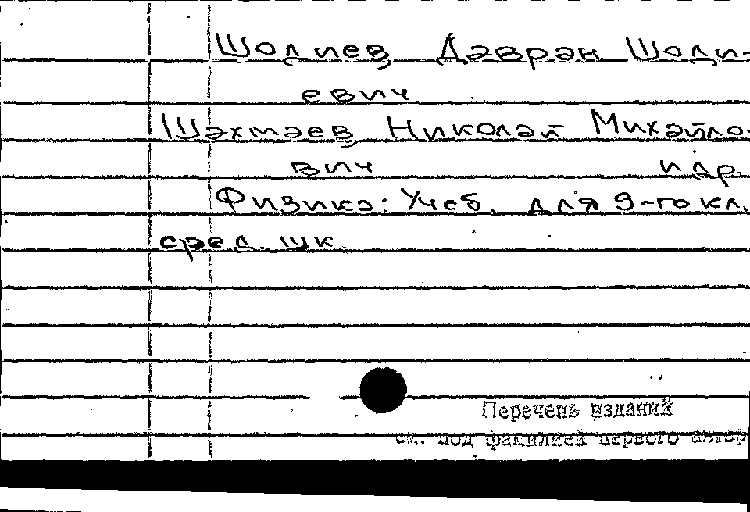 Шодиев Даврон Шоди-
евич
Шахмаев Николай Михайло-
вич и др.
Физика: Учеб. для 9-го кл.
сред. шк.
Перечень изданий
см. под фамилией первого автор